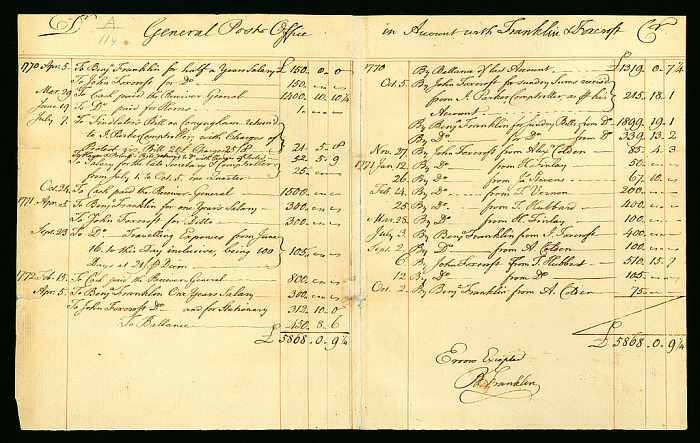 Dr A 114 General Post Office
1770 Apr. 5. To Benja Franklin for half a Years Salary £ 150. 0. 0
To John Foxcroft for Do 150.
Mar. 29 To Cash paid the Receiver General 1400. 10. 10 1/4
June 19 To Do paid for Horns 1.
July 7. To Findlater's Bill on Conyngham return'd
to J. Parker Comptroller, with Charges of
Protest 21. 5. 8
52. 5. 9
To Salary for the late Secretary & Comptroller
from July 1. to Oct. 5. one Quarter 25.
Oct. 24. To Cash paid the Receiver-General 1500.
1771 Apr. 5. To Benja Franklin for one Years Salary 300.
To John Foxcroft for Ditto 300.
Sept. 23 To Do Travelling Expences from June
16. to this Day inclusive, being 100
Days at 21/ P Diem 105.
1772 Feb. 13. To Cash paid the Receiver-General 800.
Apr. 5. To Benja Franklin One Years Salary 300.
To John Foxcroft Do and for Stationary 312. 10. 0
To Ballance 450. 8. 6
£ 5868. 0. 9 1/4
in Account with Franklin & Foxcroft Cr
1770 By Ballance of last Account £ 1319. 0. 7 1/4
Oct. 5. By John Foxcroft for sundry Sums receiv'd
from J. Parker Comptroller, as P his
Account 215. 18. 1
By Benja Franklin for sundry Bills from Do 1899. 19. 1
By Do Do from Do 339. 13. 2
Nov. 27. By John Foxcroft from Alexr Colden 85. 4. 3
1771 Jan. 12 By Do from H. Finlay 50.
26. By Do from Ja. Stevens 67. 10.
Feb. 14. By Do from T. Vernon 200.
25 By Do from T. Hubbard 400.
Mar. 28. By Do from H. Finlay 100.
July 3. By Benja Franklin from J. Foxcroft 400.
Sept. 2. By Do from A. Colden 100.
6. By John Foxcroft from T. Hubbart 510. 15. 7
12 By Do from Do 105.
Oct. 2. By Benja Franklin from A. Colden 75.
£ 5868. 0. 9 1/4
Errors Excepted
B Franklin